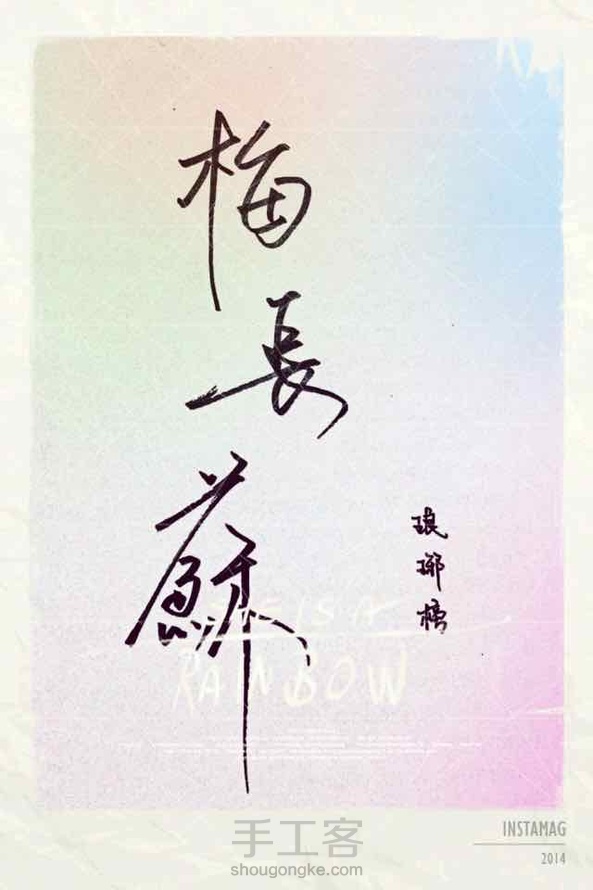 梅長蘇
琅琊榜
SHE IS A
RAINBOW
INSTAMAG
2014
手工客
shougongke.com